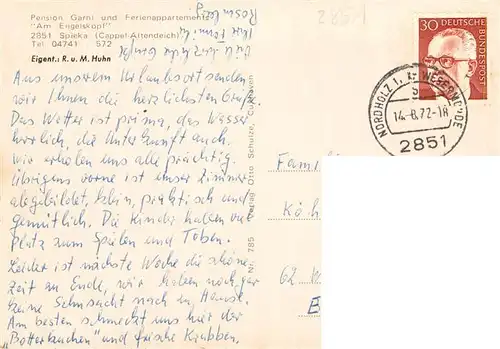 Pension Garni und Ferienappartements
"Am Engelskopf"
2851 Spieka (Cappel-Altendeich)
Tel 04741 572
Eigent.: R. u. M. Huhn
Aus unserem Urlaubsort senden
wir Ihnen die herzlichsten Grüße.
Das Wetter ist prima, das Wasser
herrlich, die Unterkunft auch.
Wir erholen uns alle prächtig.
Übrigens vorne ist unser Zimmer
abgebildet, klein, praktisch und
gemütlich. Die Kinder haben viel
Platz zum Spielen und Toben.
Leider ist nächste Woche die schöne
Zeit zu Ende, wir haben noch gar
keine Sehnsucht nach zu Hause.
Am besten schmeckt uns hier der
"Botterkuchen" und frische Krabben.
Nr. 785 Verlag Otto Schulze, Cuxhaven
2851
30 DEUTSCHE
BUNDESPOST
NORDHOLZ ü. K. WESERMÜNDE
14.-8.72-18
2851
Famili
Köh
62 W